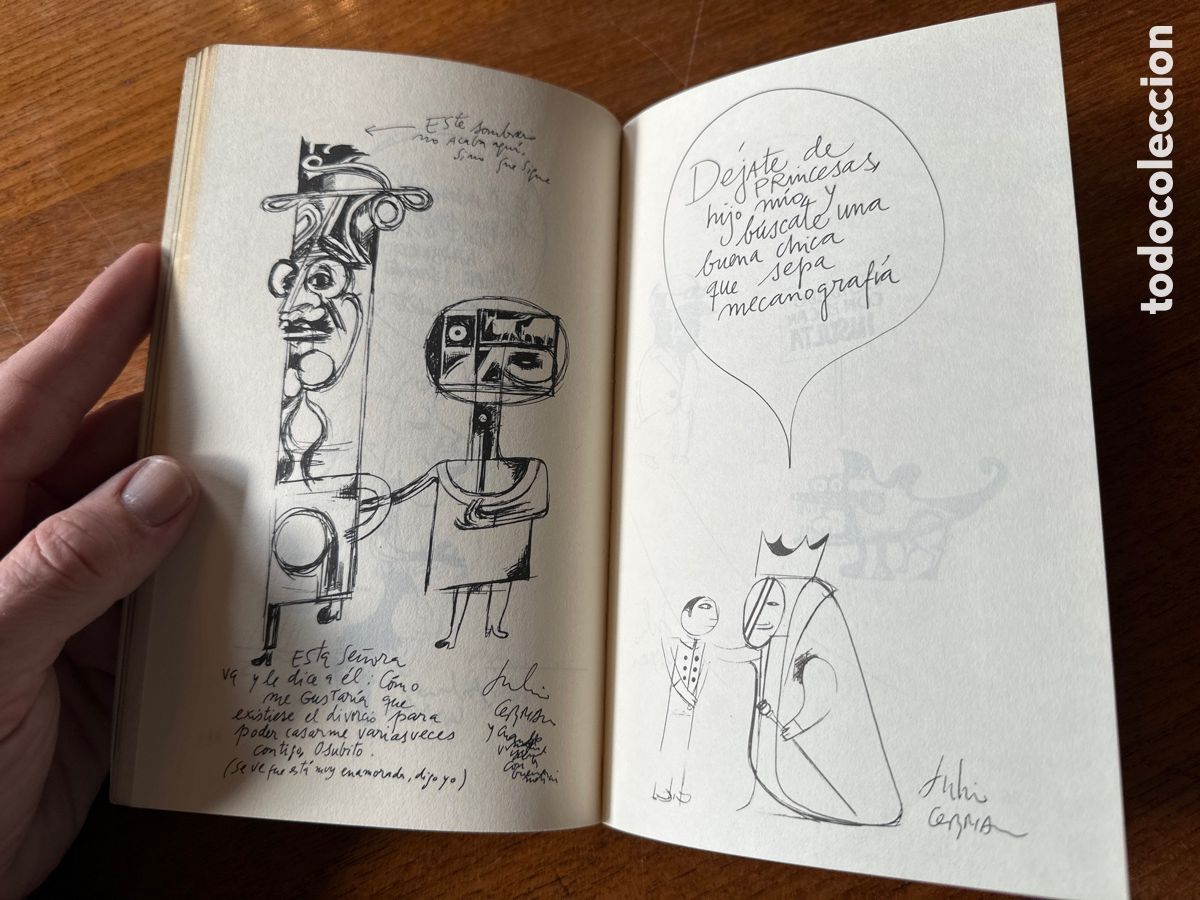 Este sombrero
no acaba aquí,
sino que sigue
Esta señora
va y le dice a él: Cómo
me gustaría que
existiese el divorcio para
poder casarme varias veces
contigo, Osubito.
(Se ve que está muy enamorada, digo yo)
Julio
CEBRIAN
y
con
Déjate de
PRINCESAS,
hijo mío, y
búscate una
buena chica
que sepa
mecanografía
Julio
CEBRIAN
todocoleccion